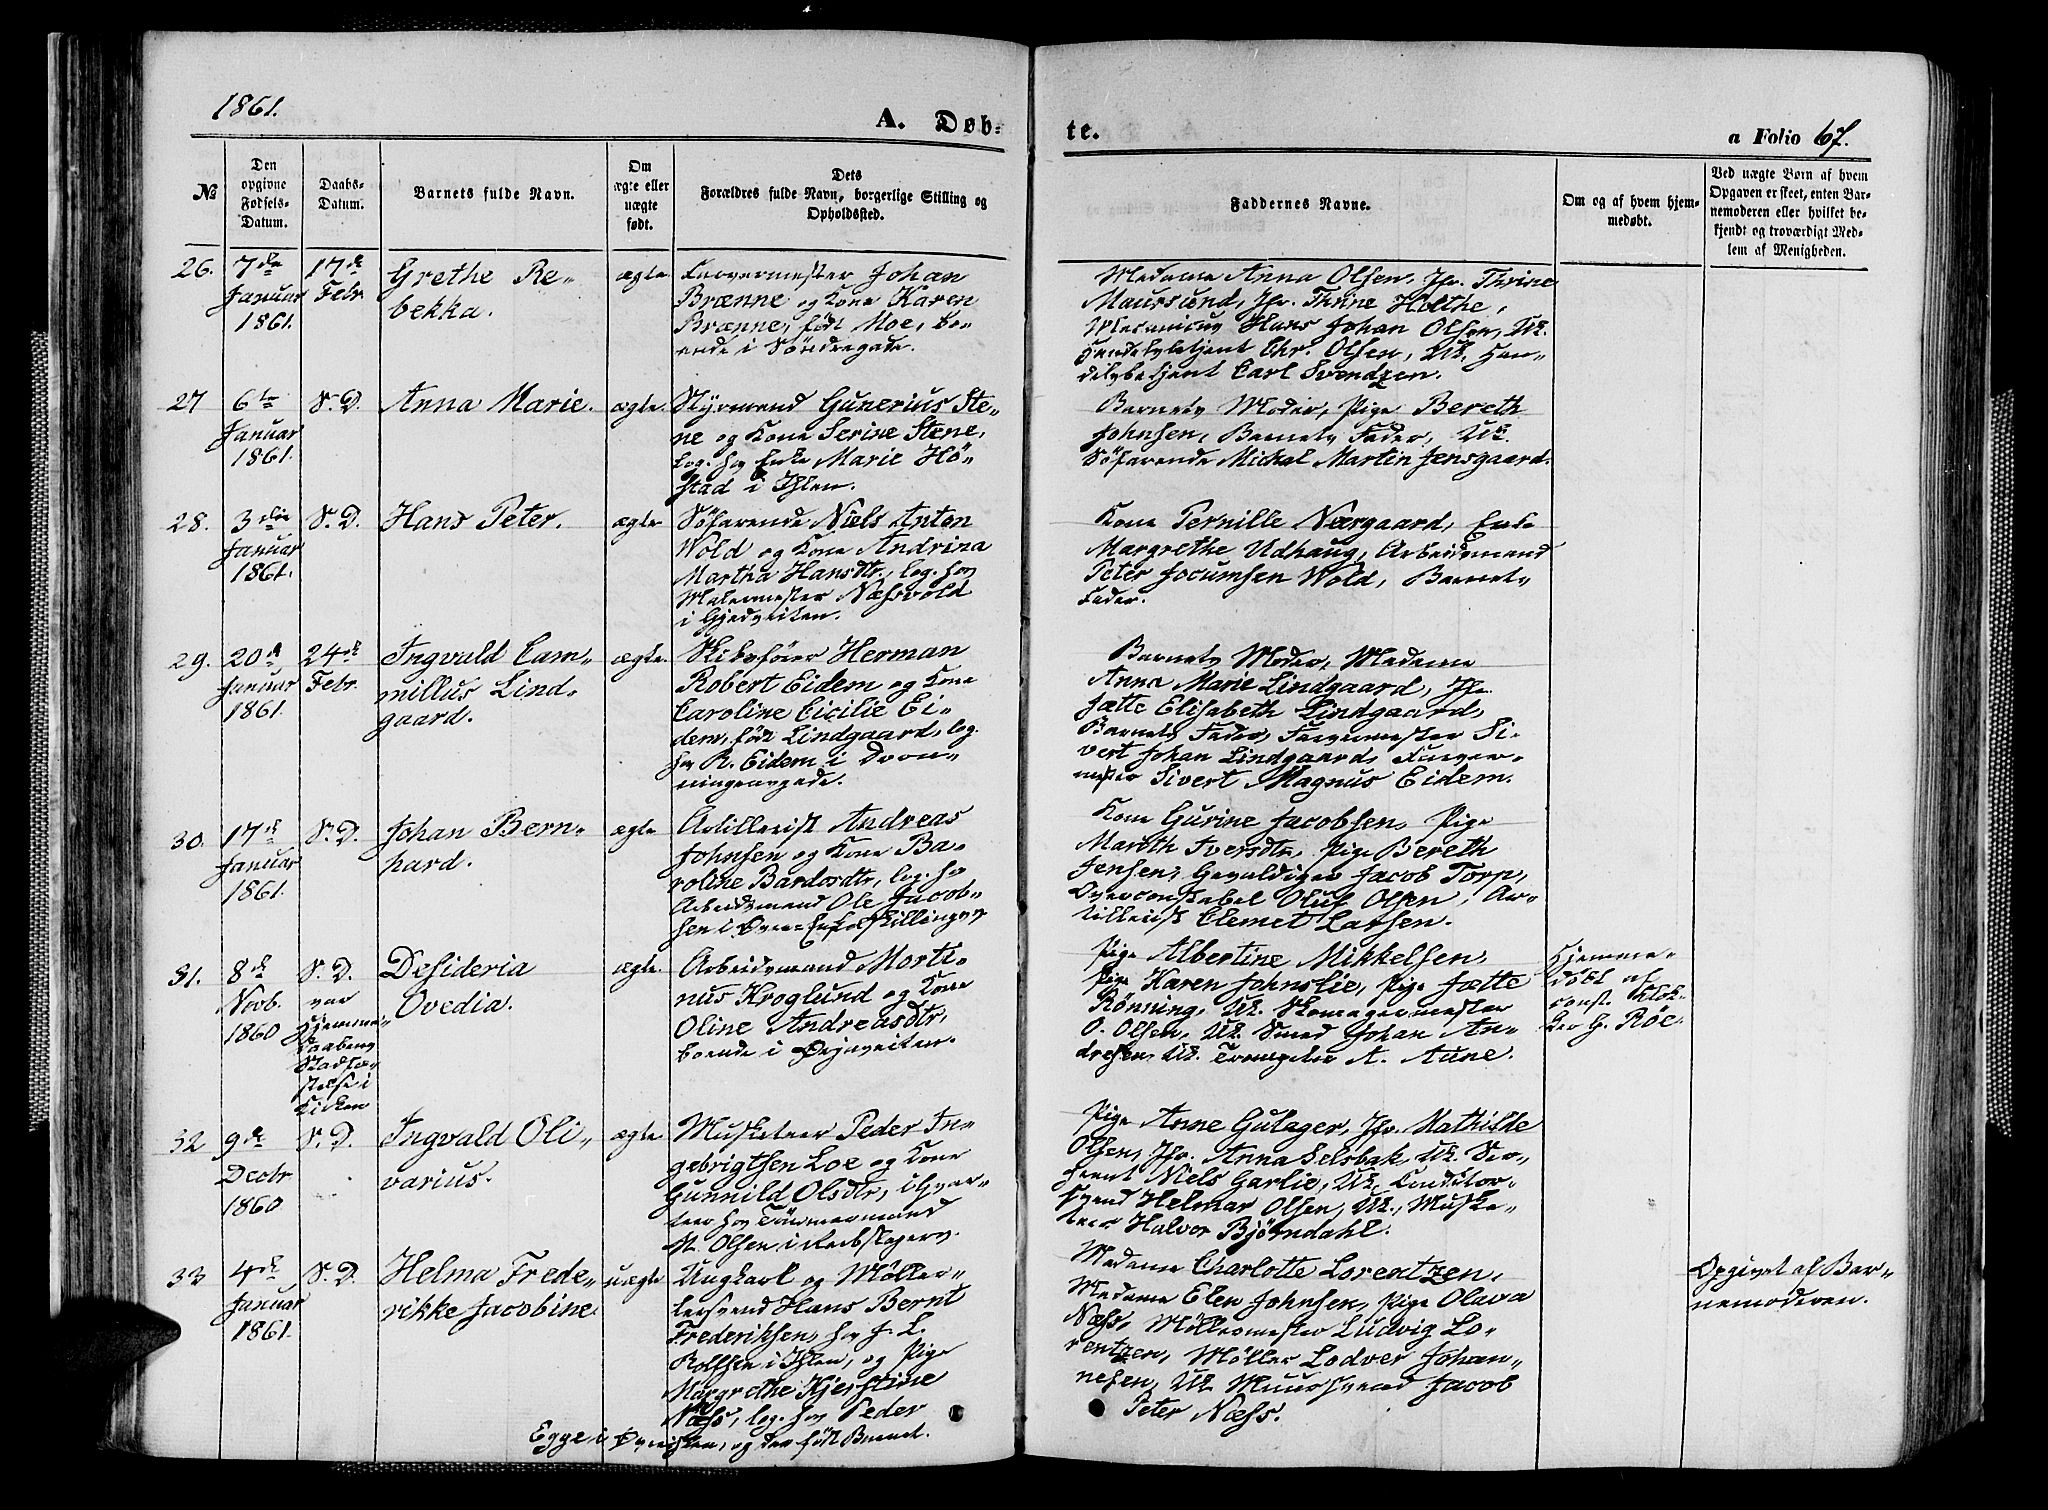 1861.
A. Døb-
te.
a Folio 67.
№
Den
opgivne
Fødsels-
Datum.
Daabs-
Datum.
Barnets fulde Navn.
Om
ægte eller
uægte
født.
Dets
Forældres fulde Navn, borgerlige Stilling og
Opholdssted.
Faddernes Navne.
Om og af hvem hjem-
medøbt.
Ved uægte Børn af hvem
Opgaven er skeet, enten Bar-
nemoderen eller hvilket be-
kjendt og troværdigt Med-
lem af Menigheden.
26.
7de
Januar
1861.
17de
Febr.
Grethe Re-
bekka.
ægte
Farvermester Johan
Brænne og Kone Karen
Brænne, født Moe, bo-
ende i Søndregade.
Madame Anna Olsen, Jfr. Thrine
Maursund, Jfr. Thrine Holthe,
Mecanicus Hans Johan Olsen, Uk.
Handelsbetjent Chr. Olsen, Uk. Han-
delsbetjent Carl Svendzen.
27
6te
Januar
1861.
S. D.
Anna Marie.
ægte.
Styrmand Gunerius Ste-
ne og Kone Serine Stene,
log. hos Enke Marie Hö-
stad i Ihlen.
Barnets Moder, Pige Bereth
Johnsen, Barnets Fader, Uk.
Söfarende Mickal Martin Jensgaard.
28.
3die
Januar
1861.
S. D.
Hans Peter.
ægte
Söfarende Niels Anton
Wold og Kone Andrina
Martha Hansdtr., log. hos
Malermester Næssvold
i Gjedveiten.
Kone Pernille Nærgaard, Enke
Margrethe Udhaug, Arbeidsmand
Peter Jocumsen Wold, Barnets
Fader.
29.
20de
Januar
1861.
24de
Febr.
Ingvald Cam-
millus Lind-
gaard.
ægte.
Skibsfører Herman
Robert Eidem og Kone
Caroline Cicilie Ei-
dem, født Lindgaard, log.
hos R. Eidem i Dron-
ningensgade.
Barnets Moder, Madame
Anna Marie Lindgaard, Jfr.
Jætte Elisabeth Lindgaard,
Barnets Fader, Farvermester Si-
vert Johan Lindgaard, Farver-
mester Sivert Magnus Eidem.
30.
17de
Januar
1861.
S. D.
Johan Bern-
hard.
ægte
Artillerist Andreas
Johnsen og Kone Ba-
roline Bardosdtr, log. hos
Arbeidsmand Ole Jacob-
sen i Øvre Enkeltskillingsv.
Kone Gurine Jacobsen, Pige
Marith Iversdtr, Pige Bereth
Jensen, Gevaldiger Jacob Torp,
Overconstabel Oluf Olsen, Ar-
tillerist Clemet Larsen.
31.
8de
Novb.
1860
S. D.
var
Hjemme-
daabens
Stadfæ-
stelse i
Kirken
Desideria
Ovedia.
ægte.
Arbeidsmand Morti-
nus Kroglund og Kone
Oline Andreasdtr,
boende i Østveiten.
Pige Albertine Mikkelsen,
Pige Karen Johnslie, Pige Jætte
Rönning, Uk. Skomagermester
O. Olsen, Uk. Smed Johan An-
dresen, Uk. A. Aune.
Hjemme-
døbt af
const. Klok-
ker G. Røe.
32
9de
Decbr
1860
S. D.
Ingvald Oli-
varius.
ægte
Musketeer Peder In-
gebrigtsen Loe og Kone
Gunnild Olsdtr, i Qvar-
teer hos Tömmermand
N. Olsen i Reebslagerv.
Pige Anne Gulager, Jfr. Mathilde
Olsen, Jfr. Anna Selsbak, Uk. Ser-
geant Niels Garlie, Uk. Conditor-
svend Helmar Olsen, Uk., Muske-
teer Halvor Bjørndahl.
33
4de
Januar
1861.
S. D.
Helma Frede-
rikke Jacobine.
uægte
Ungkarl og Møller-
svend Hans Bernt
Frederiksen, hos J. L.
Rolfsen i Ihlen, og Pige
Margrethe Kjerstine
Næss, log. hos Peder
Egge i Øvreilen, og der født Barnet.
Madame Charlotte Lorentzen,
Madame Elen Johnsen, Pige Olava
Næss, Møllermester Ludvig Lo-
rentzen, Møller Lodver Johan-
nesen, Uk Muursvend Jacob
Peter Næss.
Opgivet af Bar-
nemoderen.